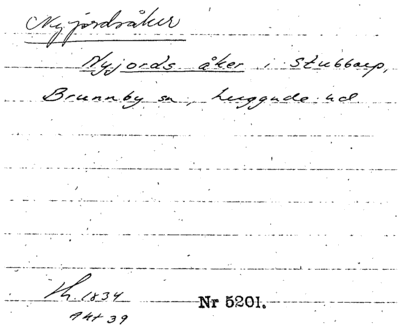 Nyjordsåker
Nyjords åker i Stubbarp,
Brunnby sn, Luggude hd
Lh. 1834
Akt 39
Nr 5201.